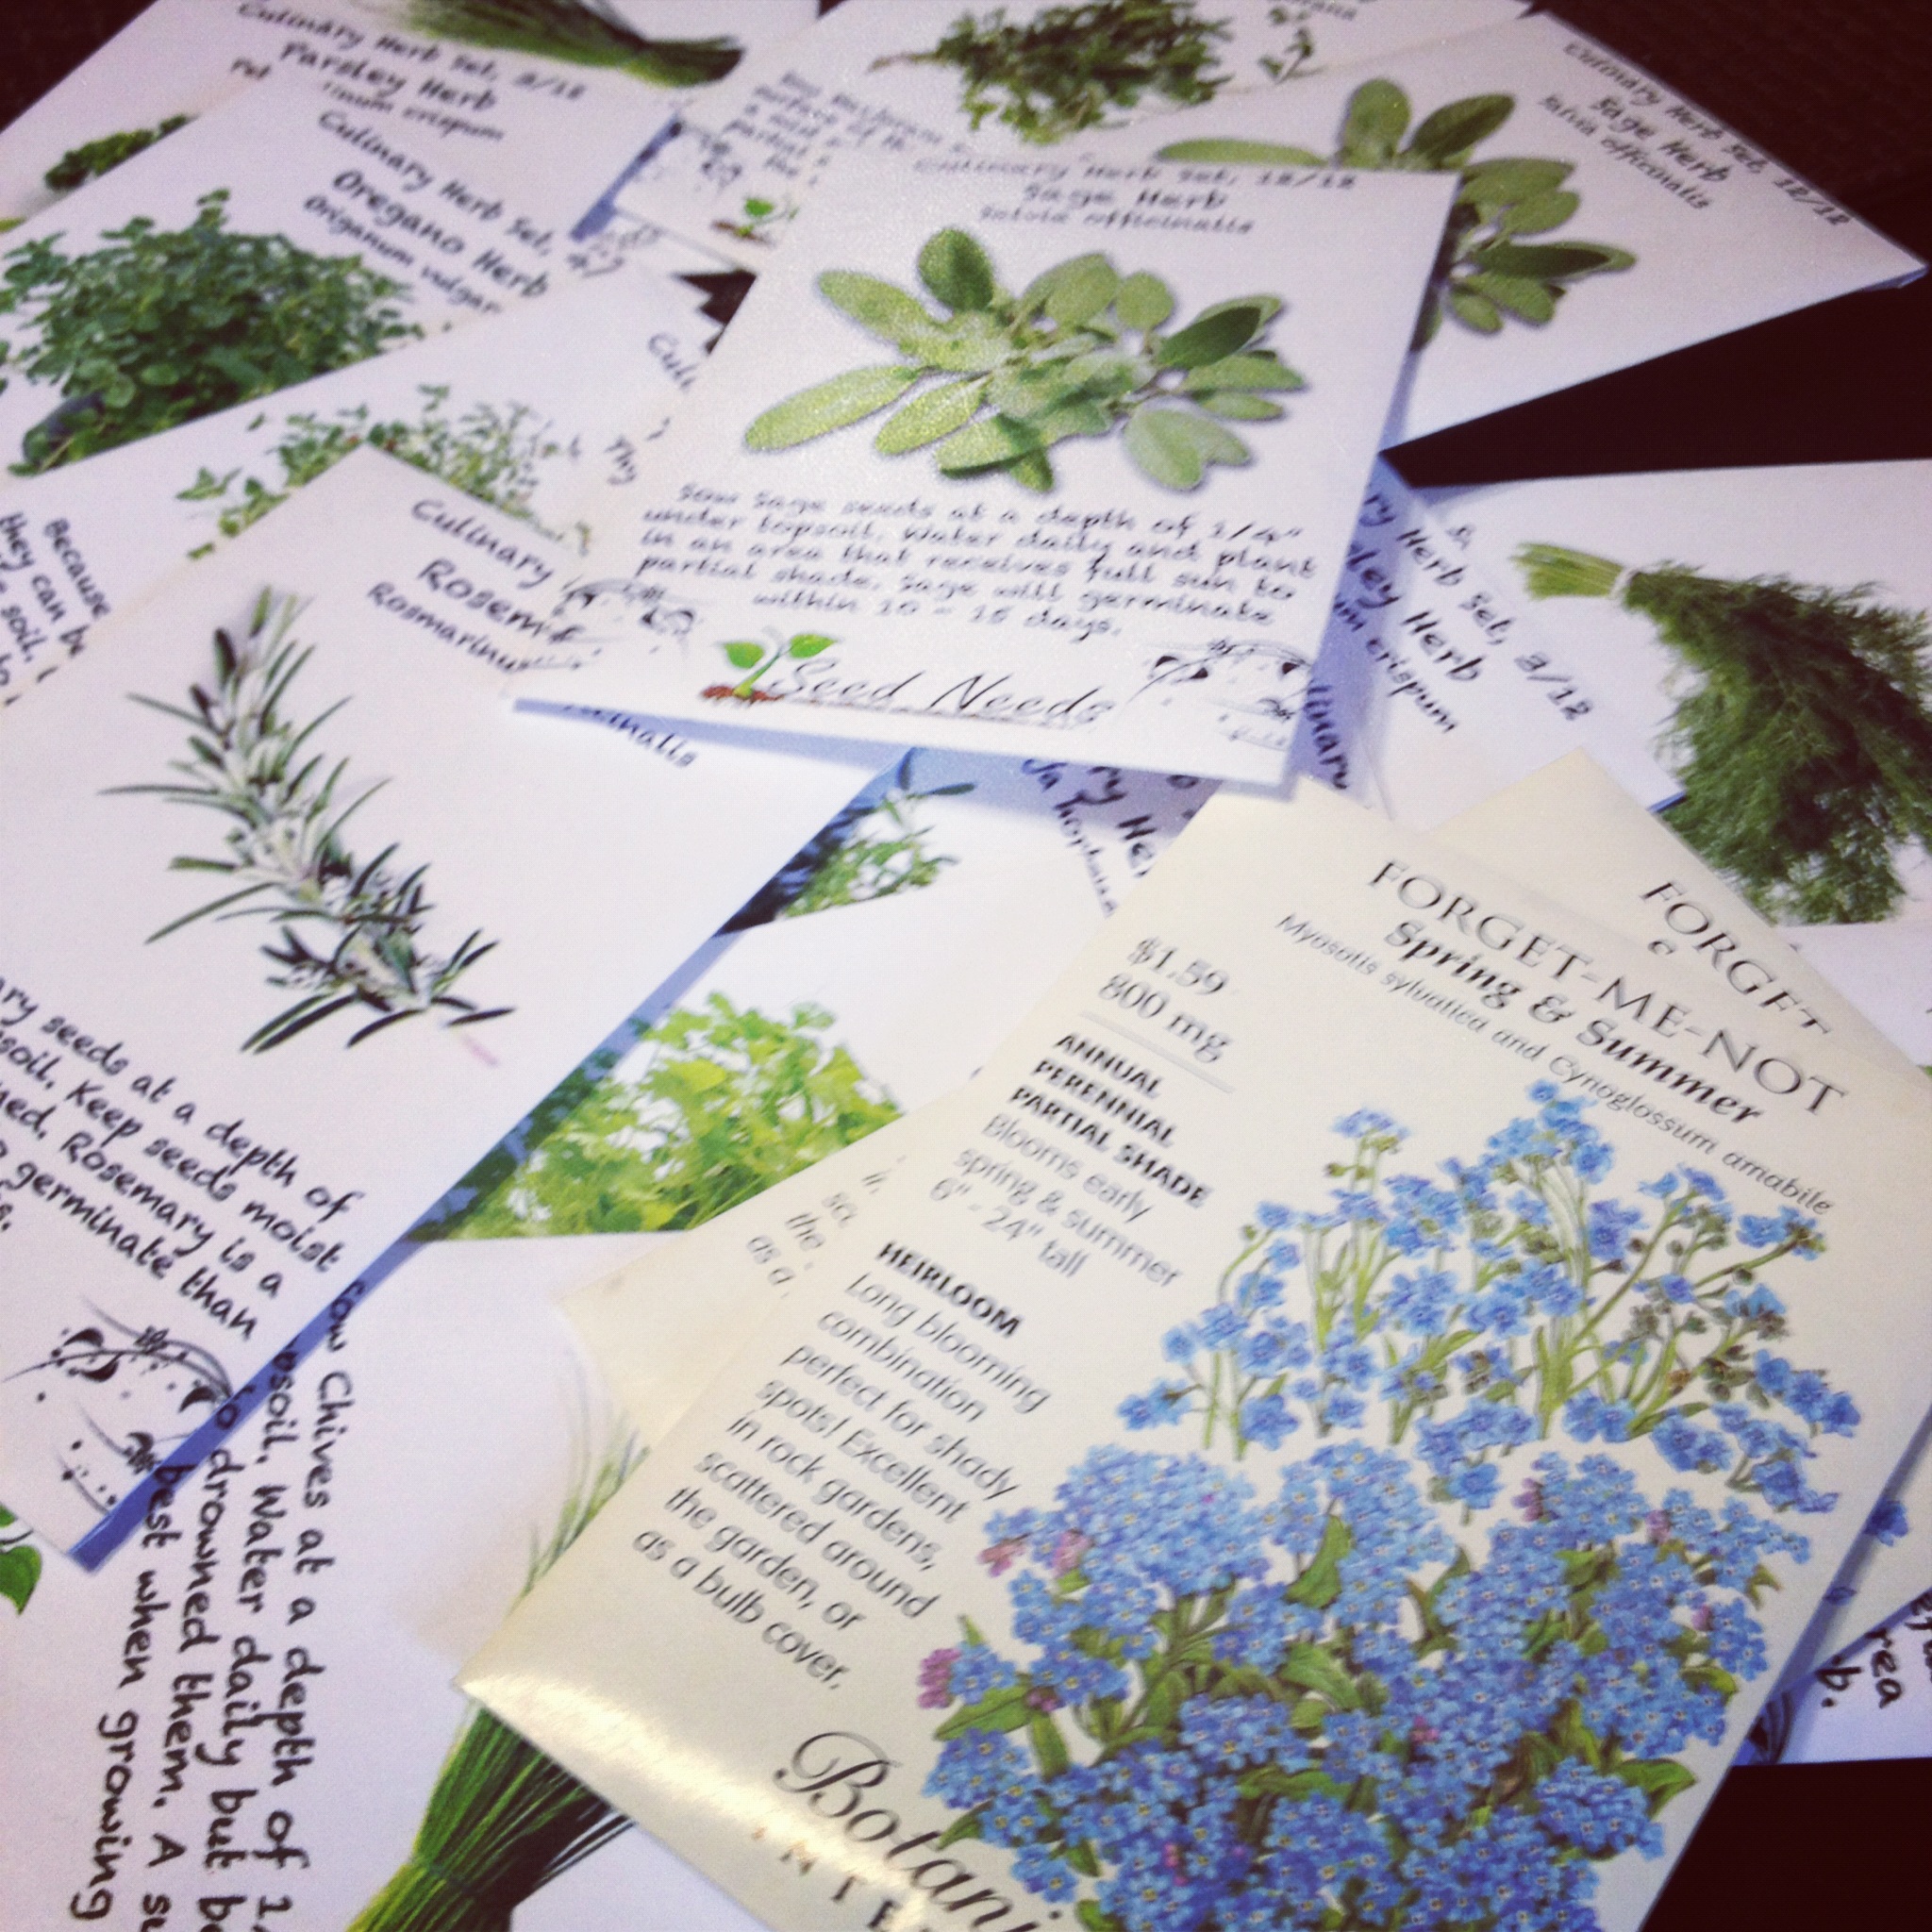 Culinary Herb Set, 3/12
Parsley Herb
crispum
Culinary Herb Set,
Oregano Herb
Origanum vulgar
Culinary Herb Set, 12/12
Sage Herb
Salvia officinalis
Culinary Herb Set, 12/12
Sage Herb
Salvia officinalis
Sow Sage seeds at a depth of 1/4"
under topsoil. Water daily and plant
in an area that receives full sun to
partial shade. Sage will germinate
within 10 - 15 days.
Seed Needs
Because
they can be
soil.
Culinary
Rosem
Rosmarinu
ry seeds at a depth of
soil. Keep seeds moist
Rosemary is a
germinate than
Herb Set, 3/12
ley Herb
crispum
FORGET
FORGET-ME-NOT
Spring & Summer
Myosotis sylvatica and Cynoglossum amabile
$1.59
800 mg
ANNUAL
PERENNIAL
PARTIAL SHADE
Blooms early
spring & summer
6" - 24" tall
HEIRLOOM
Long blooming
combination
perfect for shady
spots! Excellent
in rock gardens,
scattered around
the garden, or
as a bulb cover.
Botani
INTE
the
as a
ow Chives at a depth of 1
osoil. Water daily but b
o drowned them. A su
best when growing
rea
b.